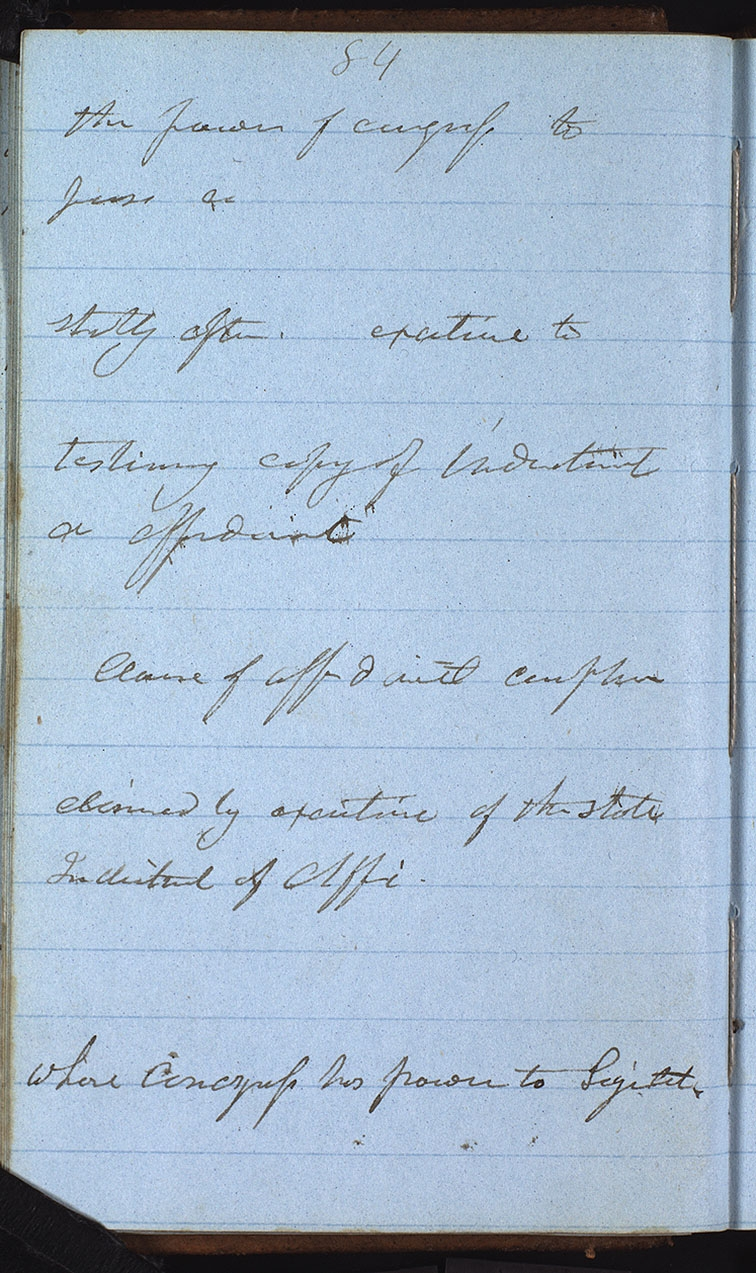 84
the power of congress to
pass a
after. executive to
testimony copy of Indictment
or affidavit
Clause of affidavit
claimed by executive of the State
Indictment of Affi.
where Congress has power to Legislate